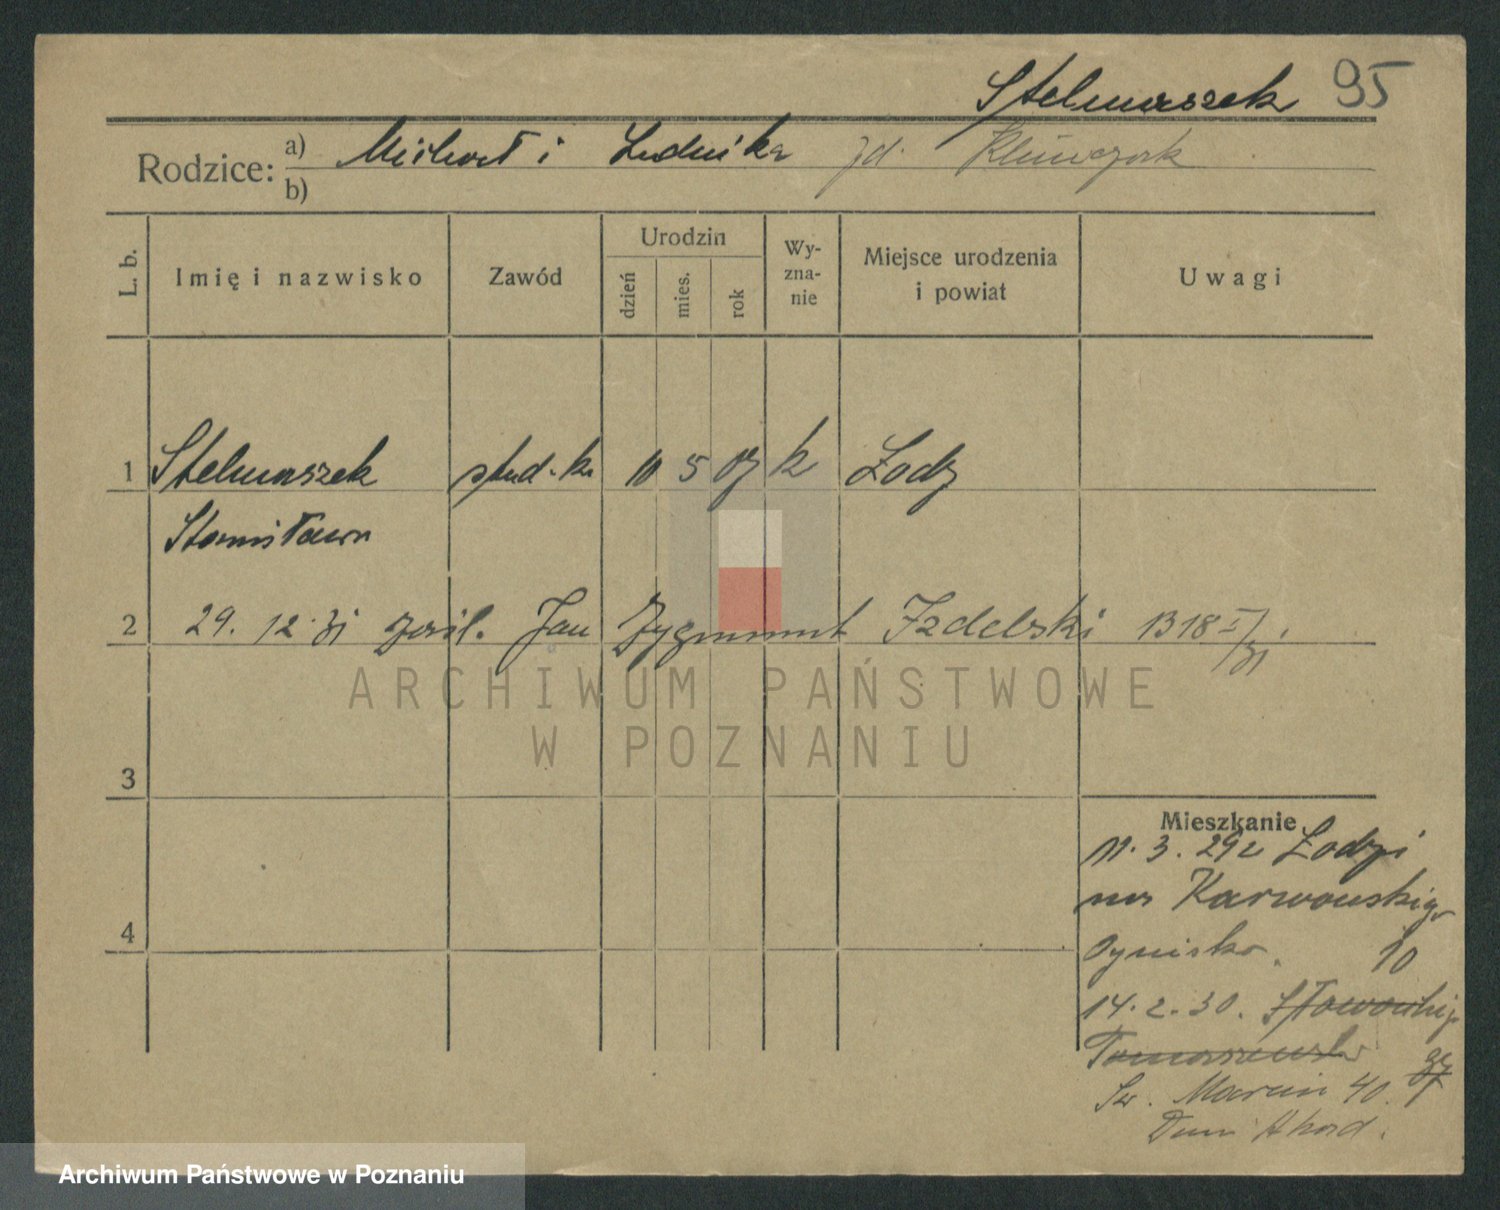 Stelmaszek 95
Rodzice: a) Michał i Ludwika zd. Klimczak
b)
L. b.
Imię i nazwisko
Zawód
Urodzin
dzień
mies.
rok
Wy-
zna-
nie
Miejsce urodzenia
i powiat
Uwagi
1 Stelmaszek stud. k. 10 5 09 k Łodz
Stanisława
2 29. 12. 31 zaśl. Jan Zygmunt Izdebski 1318 I/31.
ARCHIWUM PAŃSTWOWE
W POZNANIU
3
Mieszkanie
11. 3. 29 z Łodzi
na Karwowskiego
4
Ognisko. 10
14. 2. 30.
Św. Marcin 40.
Dom Akad.
Archiwum Państwowe w Poznaniu